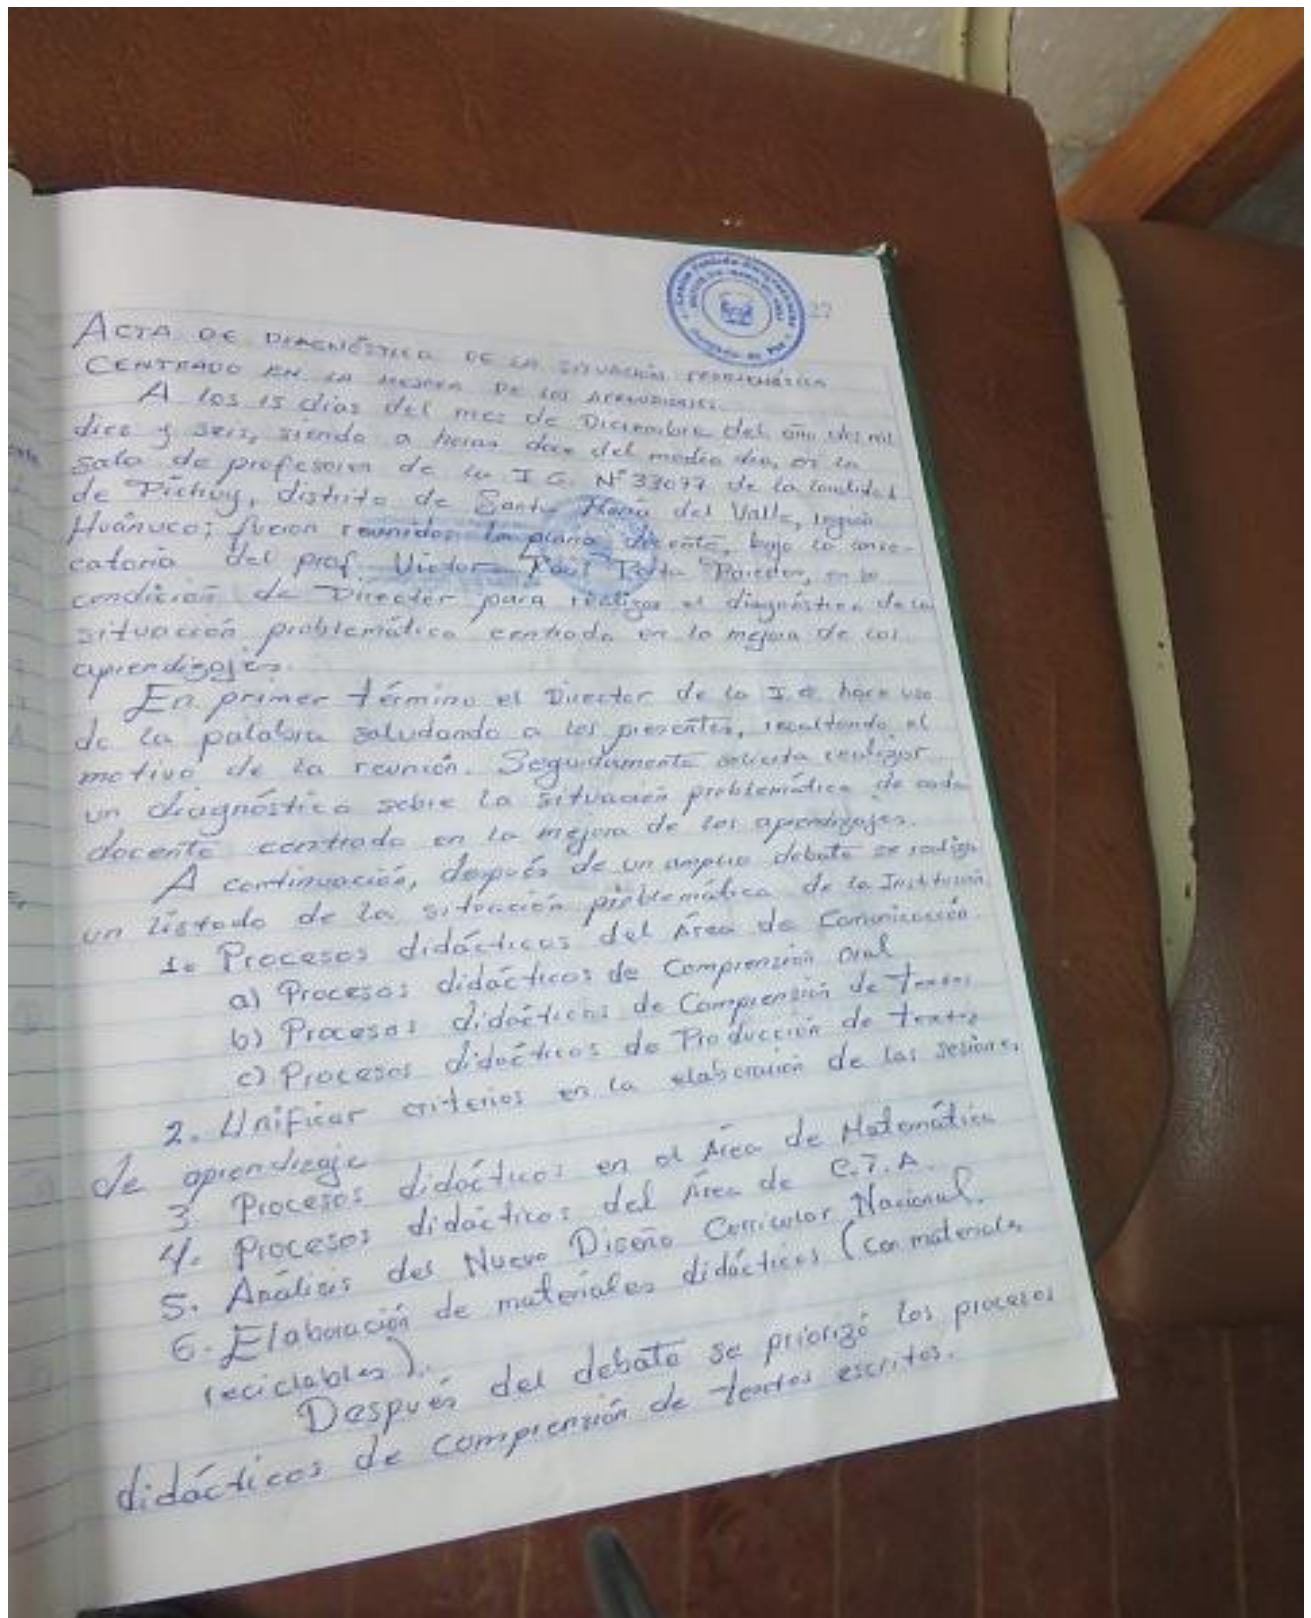 27
ACTA DE DIAGNÓSTICO DE LA SITUACIÓN PROBLEMÁTICA
CENTRADO EN LA MEJORA DE LOS APRENDIZAJES.
A los 15 días del mes de Diciembre del año dos mil
diez y seis, siendo a horas doce del medio día, en la
sala de profesores de la I.E. N° 33077 de la localidad
de Pichuy, distrito de Santa María del Valle, región
Huánuco; fueron reunidos la plana docente, bajo la convo-
catoria del prof. Victor Paredes, en su
condición de Director para realizar el diagnóstico de la
situación problemática centrada en la mejora de los
aprendizajes.
En primer término el Director de la I.E. hace uso
de la palabra saludando a los presentes, resaltando el
motivo de la reunión. Seguidamente solicita realizar
un diagnóstico sobre la situación problemática de cada
docente centrado en la mejora de los aprendizajes.
A continuación, después de un amplio debate se realiza
un listado de la situación problemática de la Institución
1. Procesos didácticos del Área de Comunicación.
a) Procesos didácticos de Comprensión Oral
b) Procesos didácticos de Comprensión de textos
c) Procesos didácticos de Producción de textos
2. Unificar criterios en la elaboración de las sesiones
de aprendizaje
3. Procesos didácticos en el Área de Matemática
4. Procesos didácticos del Área de C.T.A.
5. Análisis del Nuevo Diseño Curricular Nacional.
6. Elaboración de materiales didácticos (con materiales
reciclables).
Después del debate se priorizó los procesos
didácticos de comprensión de textos escritos.